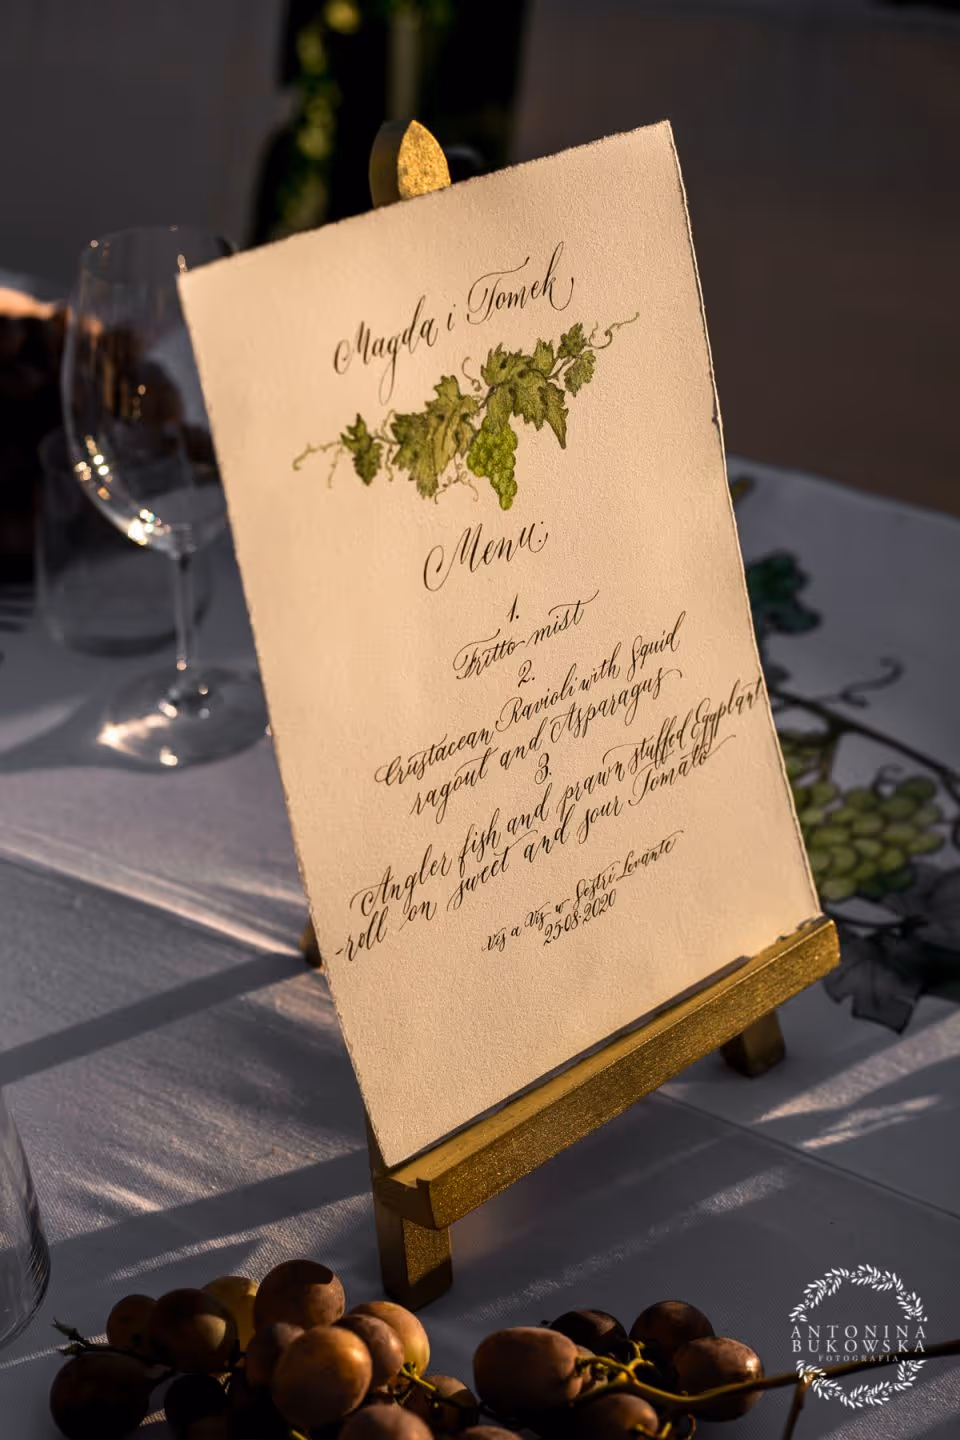 Magda i Tomek
Menu:
1.
Fritto mist
2.
Crustacean Ravioli with Squid
ragout and Asparagus
3.
Angler fish and prawn stuffed Eggplant
-roll on sweet and sour Tomato
Vis a Vis w Sestri Levante
25.08.2020
ANTONINA
BUKOWSKA
FOTOGRAFIA